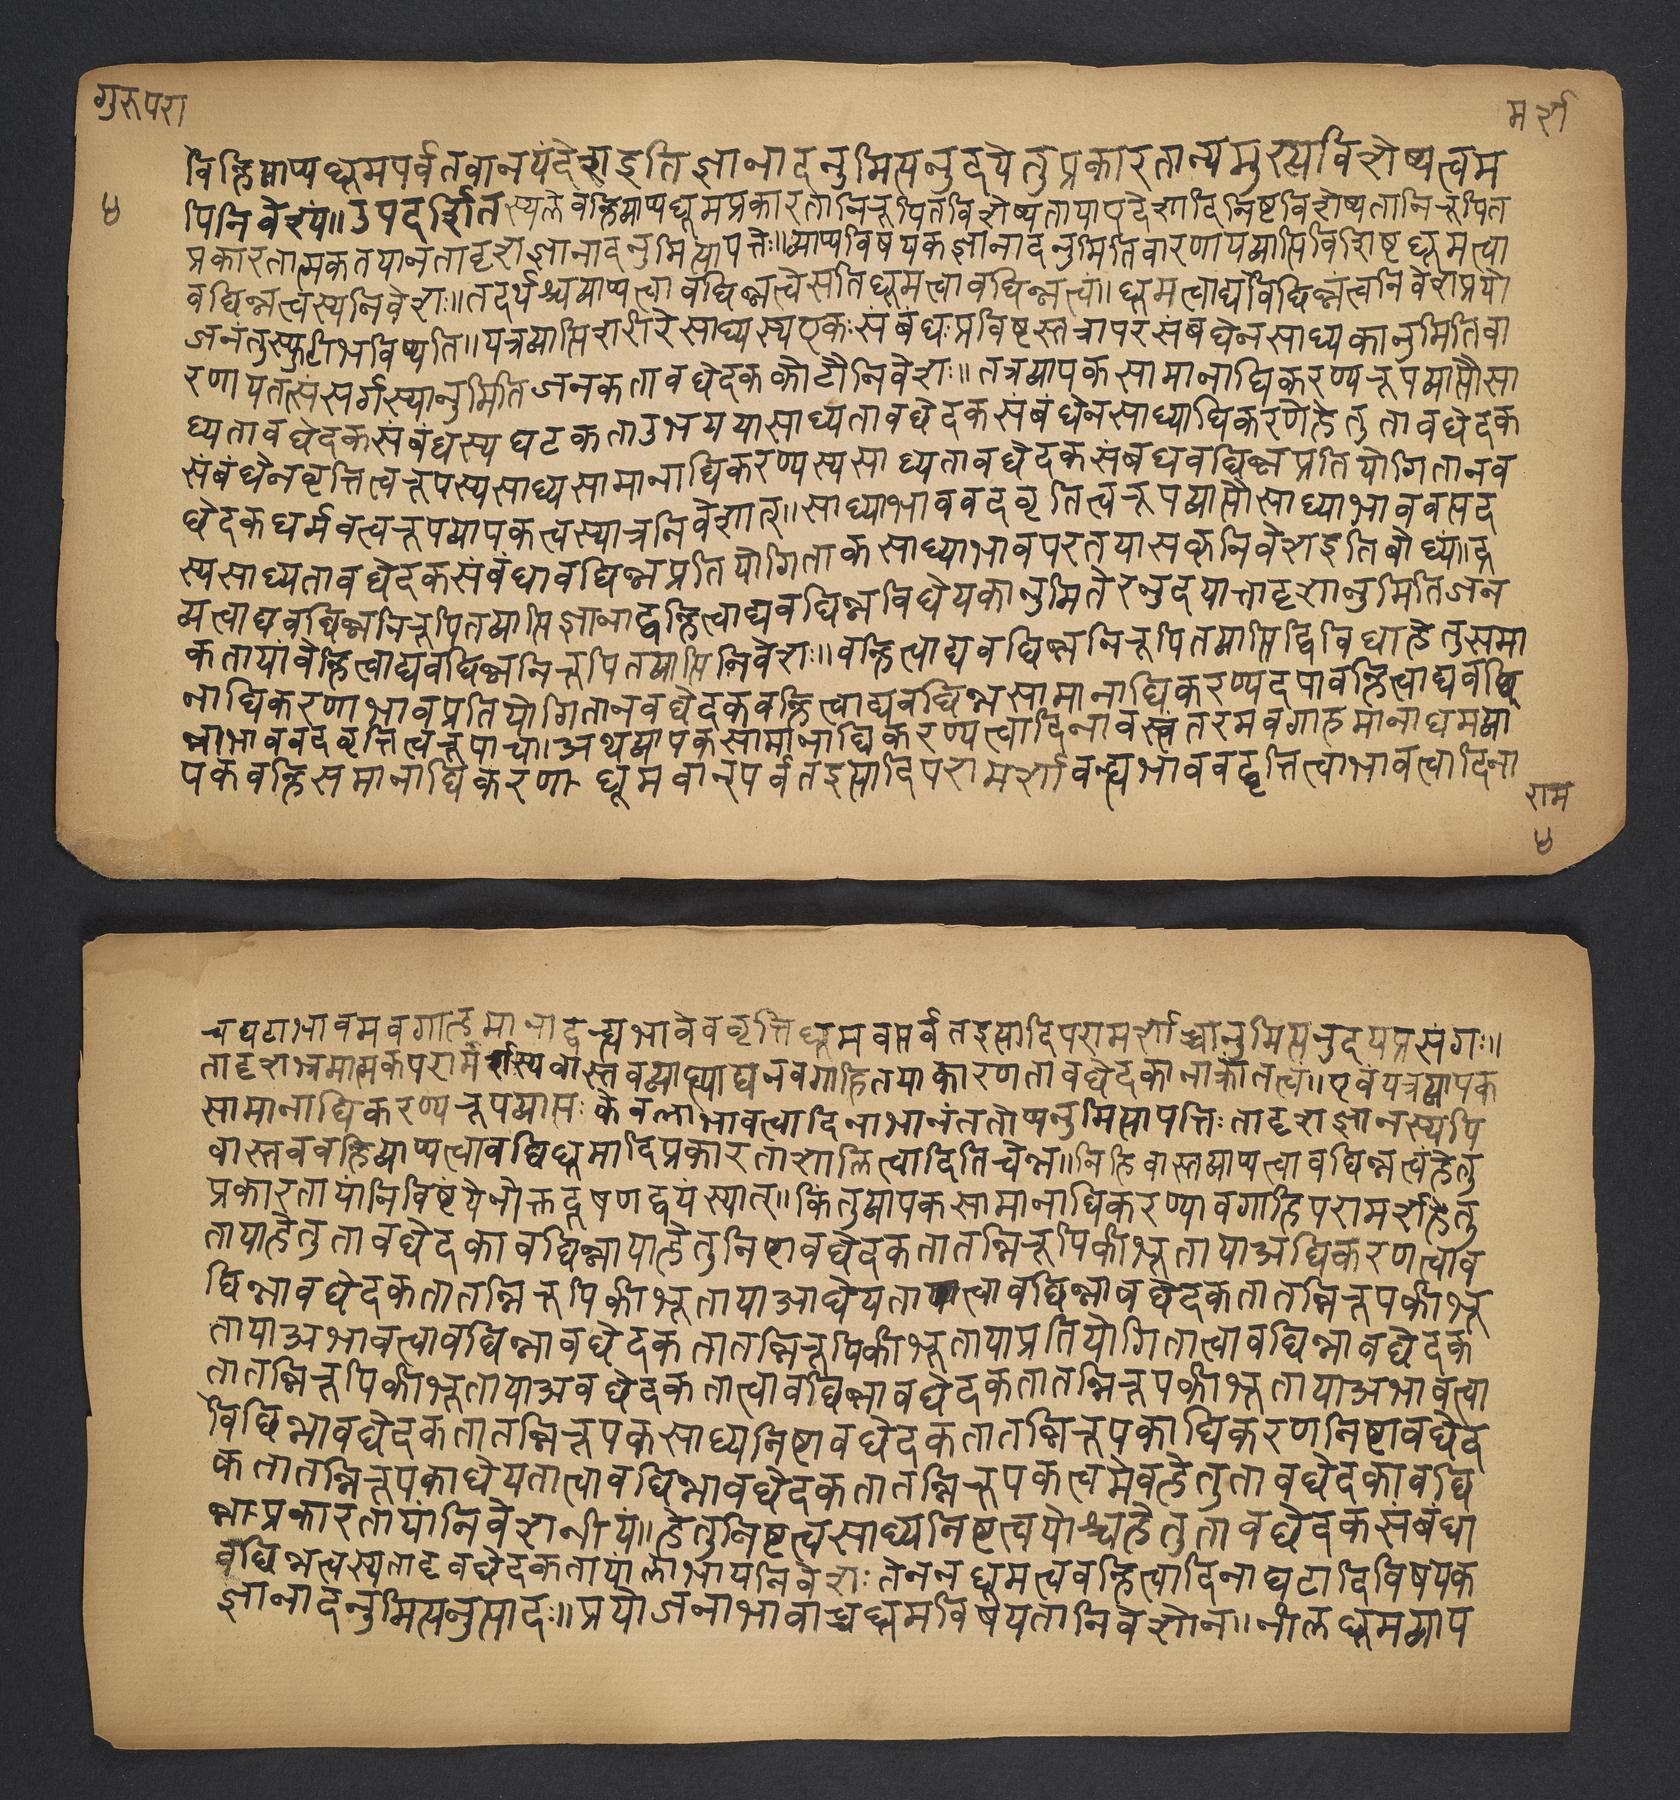 गुरुपरा
मर्श
४
वह्निव्याप्यधूमपर्वतवानयंदेश इति ज्ञानादनुमित्यनुदयेतुप्रकारतान्यमुख्यविशेष्यत्वम
पिनिवेश्यं॥ उपदर्शितस्यलेवह्निव्याप्यधूमप्रकारतानिरूपितविशेष्यतायापदेशादिनिष्टविशेष्यतानिरूपित
प्रकारतात्मकतयानतादृशज्ञानादनुमित्यापत्तेः॥व्याप्यविषयकज्ञानादनुमितिवारणायव्याप्तिविशिष्टधूमत्वा
वछिन्नत्वस्यनिवेशः॥तदर्थश्चव्याप्यत्वावछिन्नत्वेसतिधूमत्वावछिन्नत्वं॥धूमत्वाद्यवछिन्नत्वनिवेशप्रयो
जनंतुस्फुटीभविष्यति॥यत्रव्याप्तिशरीरेसाध्यस्यएकःसंबंधःप्रविष्टस्तत्रापरसंबंधेनसाध्यकानुमितिवा
रणायतत्संसर्गस्यानुमितिजनकतावछेदककोटौनिवेशः॥तत्रव्यापकसामानाधिकरण्यरूपव्याप्तौसा
ध्यतावछेदकसंबंधस्यघटकताउभययासाध्यतावछेदकसंबंधेनसाध्याधिकरणेहेतुतावछेदक
संबंधेनवृत्तित्वरूपस्यसाध्यसामानाधिकरण्यस्यसाध्यतावछेदकसंबंधवछिन्नप्रतियोगितानव
छेदकधर्मवत्त्वरूपव्यापकत्वस्यात्रनिवेशात्॥साध्याभाववदवृतित्वरूपव्याप्तौसाध्याभाववत्पद
स्यसाध्यतावछेदकसंबंधावछिन्नप्रतियोगिताकसाध्याभावपरतयासकृनिवेशइतिबोध्यं॥द्र
व्यत्वाद्यवछिन्ननिरूपितव्याप्तिज्ञानाद्वह्नित्वाद्यवछिन्नविधेयकानुमितेरनुदयात्तादृशानुमितिजन
कतायांवह्नित्वाद्यवछिन्ननिरूपितव्याप्तिनिवेशः॥वह्नित्वाद्यवछिन्ननिरूपितव्याप्तिद्विविधाहेतुसमा
नाधिकरणाभावप्रतियोगितानवछेदकवह्नित्वाद्यवछिन्नसामानाधिकरण्यदपावह्नित्वाद्यवछि
न्नाभाववदवृत्तित्वरूपाच॥अथव्यापकसामानाधिकरण्यत्वादिनावस्त्वंतरमवगाहमानाधमव्या
पकवह्निसमानाधिकरणा धूमवान्पर्वतइत्यादिपरामर्शावन्ह्यभाववद्वृत्तित्वाभावत्वादिना
राम
४
चघटाभावमवगाहमानाद्वन्ह्यभावेववृत्तिधूमवत्पर्वतइत्यादिपरामर्शाच्चानुमित्यनुदयप्रसंगः॥
तादृशभ्रमात्मकपरामर्शस्यवास्तवव्याप्त्याद्यनवगाहितयाकारणतावछेदकानाक्रांतत्वं॥एवंयत्रव्यापक
सामानाधिकरण्यरूपव्याप्तः केवलाभावत्वादिनाभानंततोप्यनुमित्यापत्तिः तादृशज्ञानस्यपि
वास्तववह्निव्याप्यत्वावछिधूमादिप्रकारताशालित्वादितिचेन्न॥नहिवास्तव्याप्यत्वावछिन्नत्वंहेतु
प्रकारतायांनिविष्टंयेनोक्तदूषणद्वयंस्यात्॥किंतुव्यापकसामानाधिकरण्यावगाहिपरामर्शहेतु
तायाहेतुतावछेदकावछिन्नायाहेतुनिष्टावछेदकतातन्निरूपिकीभूतायाअधिकरणत्वाव
छिन्नावछेदकतातन्निरूपिकीभूतायाआधेयतात्वावछिन्नावछेदकतातन्निरूपकीभू
तायाअभावत्वावछिन्नावछेदकतातन्निरूपिकीभूतायाप्रतियोगितात्वावछिन्नावछेदक
तातन्निरूपिकीभूतायाअवछेदकतात्वावछिन्नावछेदकतातन्निरूपकीभूतायाअभावत्वा
वछिन्नावछेदकतातन्निरूपकसाध्यनिष्टावछेदकतातन्निरूपकाधिकरणनिष्टावछेद
कतातन्निरूपकाधेयतात्वावछिन्नावछेदकतातन्निरूपकत्वमेवहेतुतावछेदकावछि
न्न प्रकारतायांनिवेशनीयं॥हेतुनिष्टत्वसाध्यनिष्टत्वयोश्चहेतुतावछेदकसंबंधा
वछिन्नत्वस्यतादृवछेदकतायांलाभायनिवेशः तेननधूमत्ववह्नित्वादिनाघटादिविषयक
ज्ञानादनुमित्यनुत्पादः॥प्रयोजनाभावाच्चधूमविषयतानिवेशोन॥नीलधूमव्याप